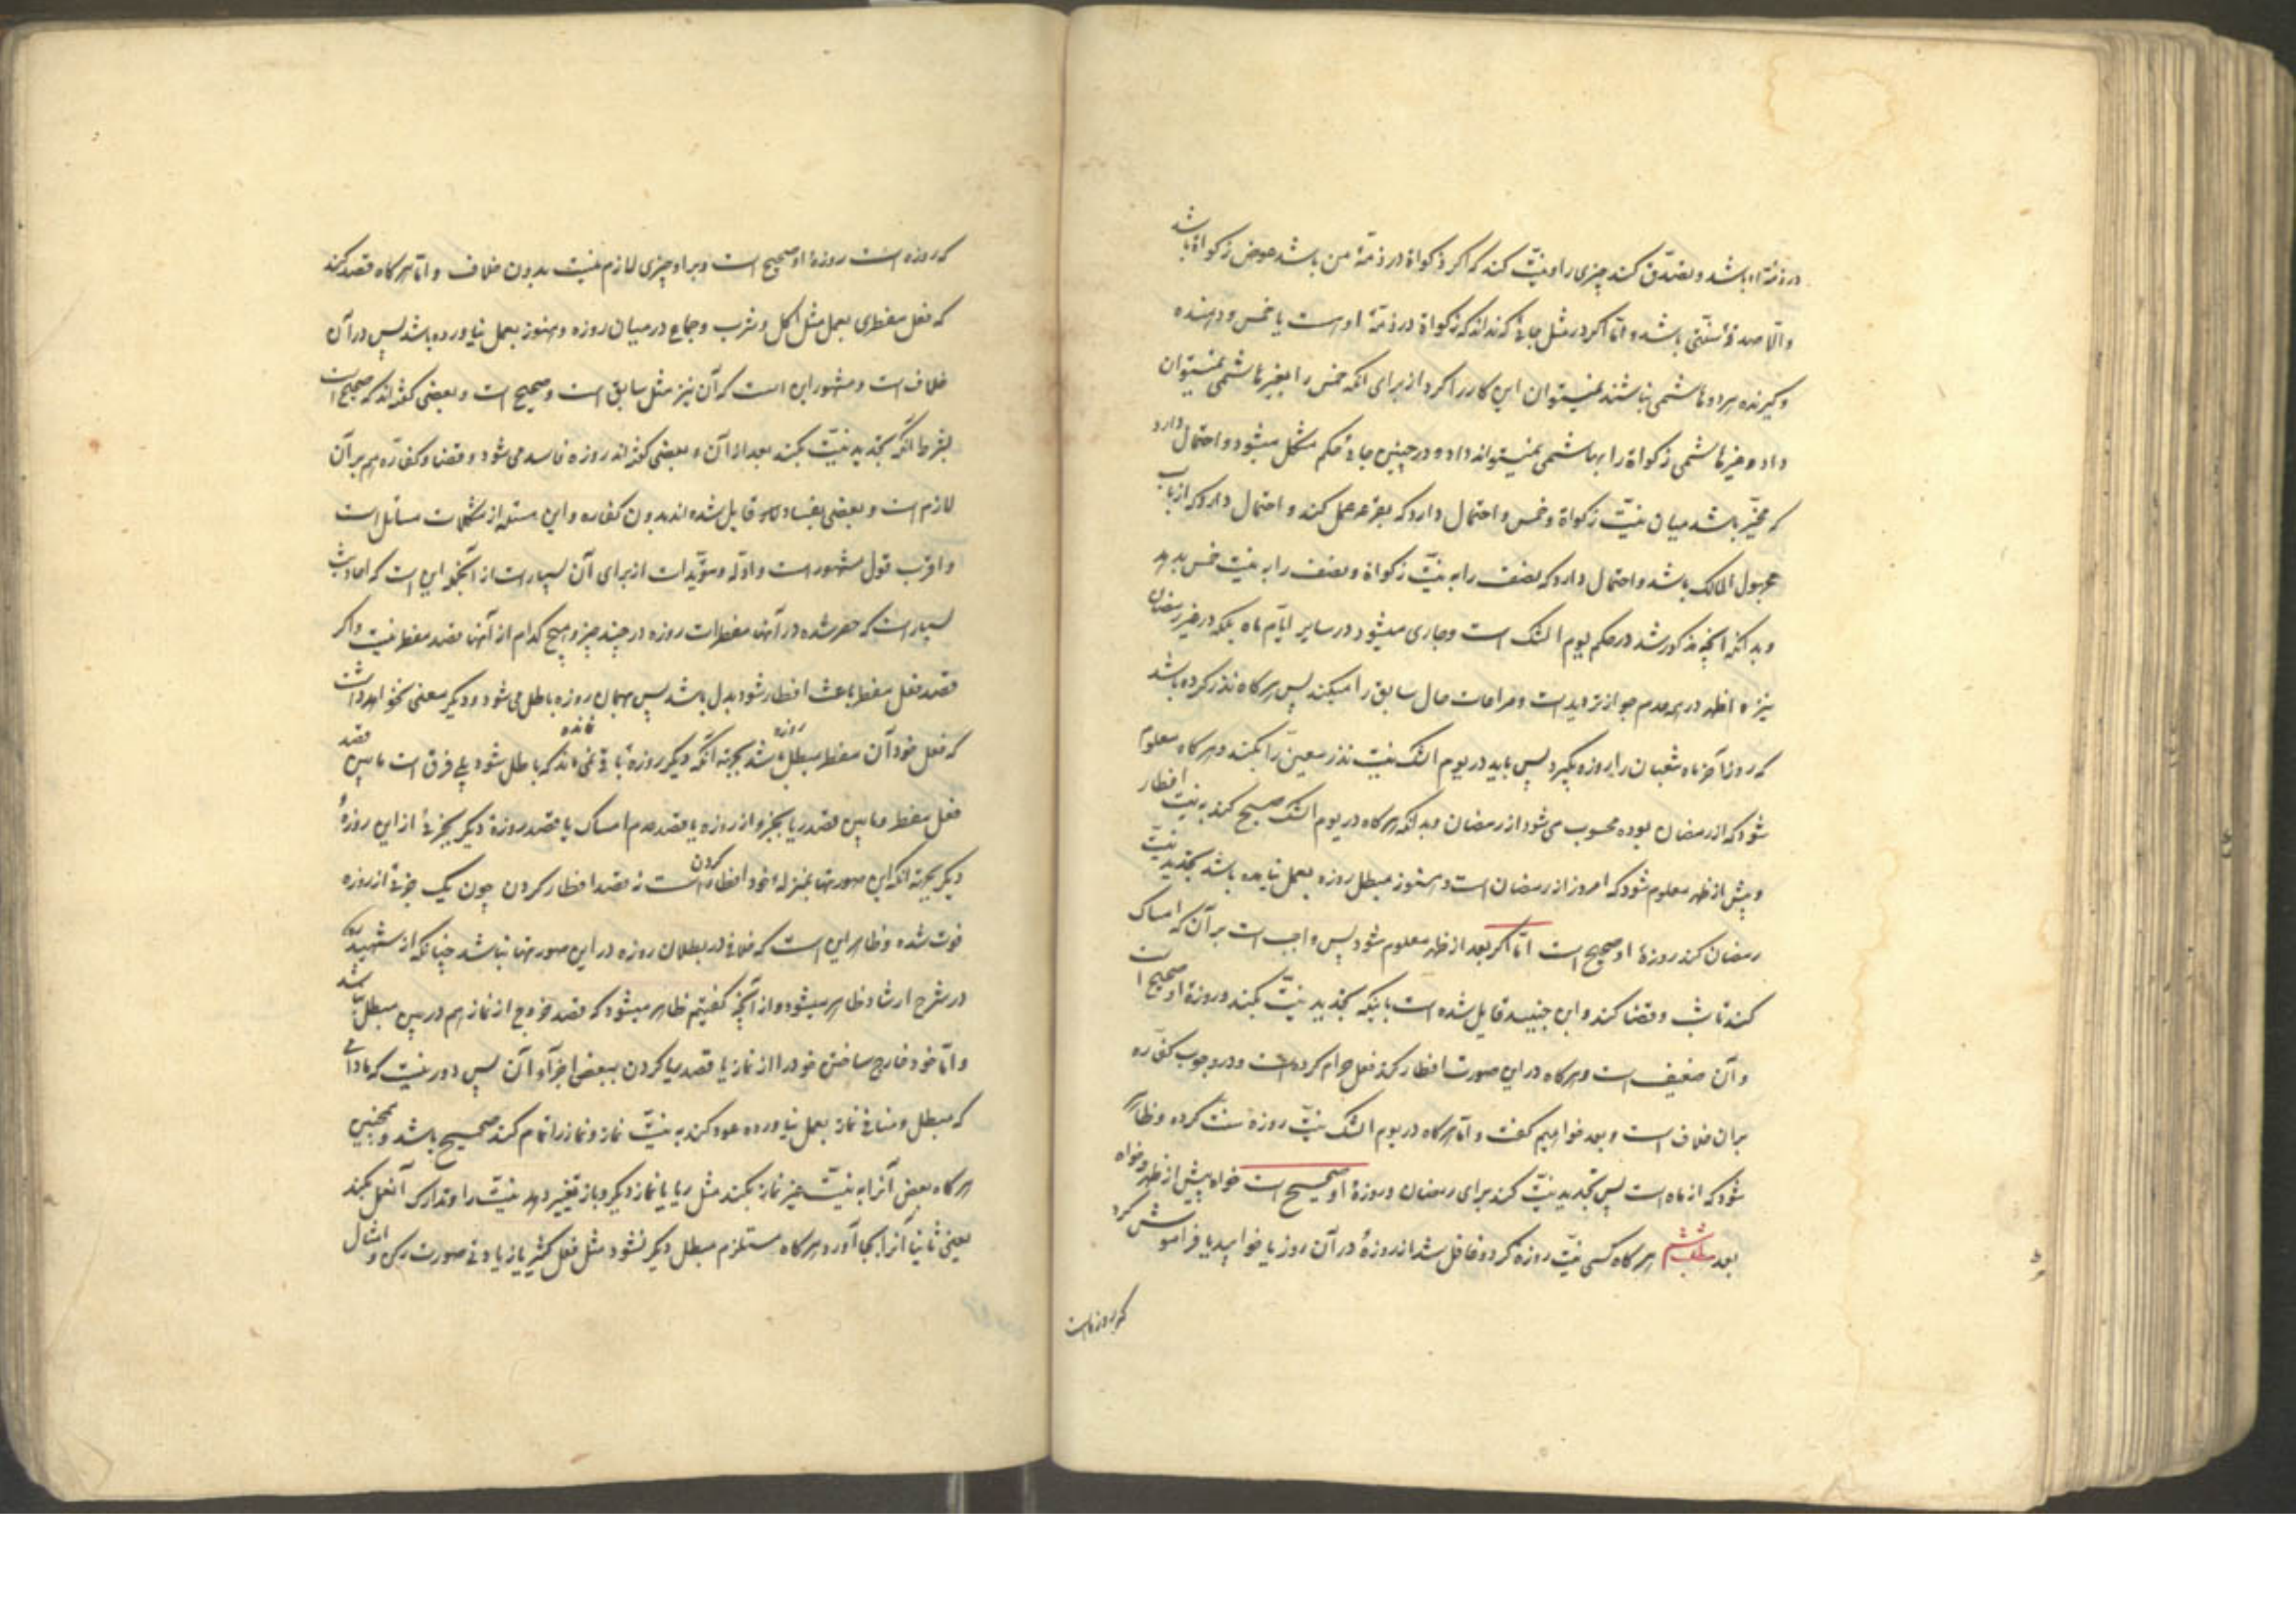 در ذمّهٔ او باشد و تصدّق کند چیزی را و نیّت کند که اگر زکواة در ذمّهٔ من باشد عوض زکواة باشد
و الّا صدقهٔ سنّتی باشد و امّا اگر در مثل جائی که نداند که زکواة در ذمّهٔ او است یا خمس و دهنده
و گیرنده هر دو هاشمی نباشند نمیتوان این کار را کرد از برای انکه خمس را بغیر هاشمی نمیتوان
داد و غیر هاشمی زکواة را بهاشمی نمیتواند داد و در چنین جائی حکم مشکل میشود و احتمال دارد
که مخیّر باشد میان نیّت زکواة و خمس و احتمال دارد که بقرعه عمل کند و احتمال دارد که از باب
مجهول المالک باشد و احتمال دارد که نصف را به نیّت زکواة و نصف را به نیّت خمس بدهد
و بدانکه آنچه مذکور شد در حکم یوم الشک است و جاری میشود در سایر ایّام ماه بلکه در غیر رمضان
نیز و اظهر در همه عدم جواز تردید است و مراعات حال سابق را میکند پس هرگاه نذر کرده باشد
که روز آخر ماه شعبان را روزه بگیرد پس باید در یوم الشک نیّت نذر معیّن را بکند و هرگاه معلوم
شود که از رمضان بوده محسوب می شود از رمضان و بدانکه هرگاه در یوم الشک صبح کند به نیّت افطار
و پیش از ظهر معلوم شود که امروز از رمضان است و هنوز مبطل روزه بعمل نیامده باشد تجدید نیّت
رمضان کند روزهٔ او صحیح است امّا اگر بعد از ظهر معلوم شود پس واجب است بر آن که امساک
کند تا شب و قضا کند و ابن جنید قایل شده است باینکه تجدید نیّت بکند و روزهٔ او صحیح است
و آن ضعیف است و هرگاه در این صورت افطار کند فعل حرام کرده است و در وجوب کفّاره
بران خلاف است و بعد خواهیم گفت و امّا هرگاه در یوم الشک نیّت روزهٔ سنّت کرده و ظاهر
شود که از ماه است پس تجدید نیّت کند برای رمضان و روزهٔ او صحیح است خواه پیش از ظهر و خواه
بعد مطلب ششم هرگاه کسی نیّت روزه کرد و غافل شد از روزهٔ در آن روز یا خوابید یا فراموش کرد
که روزه است
که روزه است روزهٔ او صحیح است و بر او چیزی لازم نیست بدون خلاف و امّا هرگاه قصد کند
که فعل مفطری بعمل مثل اکل و شرب و جماع در میان روزه و هنوز بعمل نیاورده باشد پس در آن
خلاف است و مشهور این است که آن نیز مثل سابق است و صحیح است و بعضی گفته‌اند که صحیح است
بشرط آنکه تجدید نیّت بکند بعد از آن و بعضی گفته‌اند روزه فاسد می شود و قضا و کفّاره هم بر آن
لازم است و بعضی بفساد قایل شده‌اند بدون کفاره و این مسئله از مشکلات مسائل است
و اقرب قول مشهور است و ادلّه و مؤیّدات از برای آن بسیار است از آنجمله این است که احادیث
بسیار است که حصر شده در آنها مفطرات روزه در چند چیز و هیچ کدام از آنها قصد مفطر نیست و اگر
قصد فعل مفطر باعث افطار شود بدل باشد پس بهمان روزه باطل می شود و دیگر معنی نخواهد داشت
که فعل خود آن مفطر مبطل روزه باشد بجهته آنکه دیگر روزه باقی نمانده که باطل شود بلی فرق است مابین قصد
فعل مفطر و مابین قصد ریا بجزو از روزه یا قصد عدم امساک یا قصد روزهٔ دیگر بجزئی از این روزهٔ
دیگر بجهته آنکه این صورتها بمنزلهٔ خود افطار کردن است نه قصد افطار کردن چون یک جزئی از روزه
فوت شده و ظاهر این است که خلافی در بطلان روزه در این صورتها نباشد چنانکه از شهید
در شرح ارشاد ظاهر میشود و از آنچه گفتیم ظاهر میشود که قصد خروج از نماز هم در بین مبطل نباشد
و امّا خود خارج ساختن خود را از نماز یا قصد ریا کردن ببعض اجزآء آن پس دور نیست که مادامی
که مبطل و منافی نماز بعمل نیاورده عود کند به نیّت نماز و نماز را تمام کند صحیح باشد و همچنین
هرگاه بعض آنرا به نیّت غیر نماز بکند مثل ریا یا نماز دیگر و باز تغییر دهد نیّت را و تدارک آنفعل بکند
یعنی ثانیا آنرا بجا آورد و هرگاه مستلزم مبطل دیگر نشود مثل فعل کثیر یا زیادتی صورت رکن و امثال